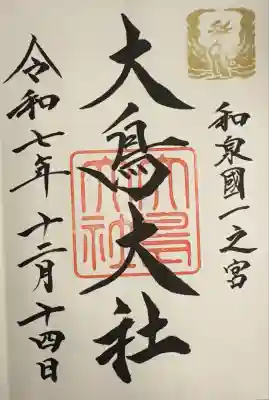 和泉國一之宮
大鳥大社
大鳥大社
令和七年十二月十四日